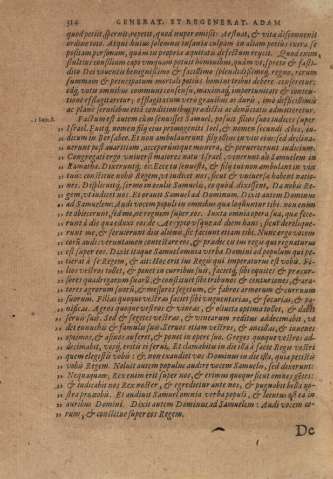 314 GENERAT. ET REGENERAT. ADAM
quod petiit, spernit, repetit, quod nuper omisit: Aestuat, & vita disconvenit
ordine toto. Atque huius solemnis insania culpam in alium potius extra se
positam personam, quàm in propria equitate defectum reijcit. Quod enim
stultius consilium capi vnquam potuit hominibus, quàm vt, spreto & fasti-
dito Dei vnientis benignissimo & facillimo regno, rerum
summam & principatum mortali potius homini tribus deberi conserent:
idq, votis omnibus communi consensu, maximaq, importunitate & conten-
tione efflagitarent; efflagitatum verò grauibus ac duris, imò difficillimis
ac planè seruilibus etiã conditionibus praeditũ ac denũtiatũ admitterent.
1. Sam. 8. „ Factum est autem cùm senuisset Samuel, posuit filios suos iudices super
„ Israel. Fuitq, nomen filij eius primogeniti Ioel, & nomen secundi Abia, iu-
„ dicum in Bersabee. Et non ambulauerunt filij illius in vijs eius: sed declina-
„ uerunt post auaritiam, acceperuntque munera, & peruerterunt iudicium.
„ Congregati ergo vniuersi maiores natu Israel, venerunt ad Samuelem in
„ Ramatha. Dixeruntq, ei: Ecce tu senuisti, & filij tui non ambulant in vijs
„ tuis: constitue nobis Regem, vt iudicet nos, sicut & vniuersae habent natio-
„ nes. Displicuitq, sermo in oculis Samuelis, eo quòd dixissent, Da nobis Re-
„ gem, vt iudicet nos. Et orauit Samuel ad Dominum. Dixit autem Dominus
„ ad Samuelem: Audi vocem populi in omnibus quae loquuntur tibi. non enim
„ te abiecerunt, sed me, ne regnem super eos. Iuxta omnia opera sua, quae fece-
„ runt à die qua eduxi eos de Aegypto vsque ad diem hanc: sicut derelique-
„ runt me, & seruierunt dijs alienis, sic faciunt etiam tibi. Nunc ergo vocem
„ eorũ audi: veruntamen contestare eos, & praedic eis ius regis qui regnaturus
„ est super eos. Dixit itaque Samuel omnia verba Domini ad populum qui pe-
„ tierat à se Regem, & ait: Hoc erit ius Regis qui imperaturus est vobis. Fi-
„ lios vestros tollet, & ponet in curribus suis, facietq, sibi equites & praecur-
„ sores quadrigarum suarũ, & constituet sibi tribunos & centuriones, & ara-
„ tores agrorum suorũ, & messores segetum, & fabros armorum & curruum
„ suorum. Filias quoque vestras faciet sibi vnguentarias, & focarias, & pa-
„ nificas. Agros quoque vestros & vineas, & oliueta optima tollet, & dabit
„ seruis suis. Sed & segetes vestras, & vinearum reditus addecimabit, vt
„ det eunuchis & famulis suis. Seruos etiam vestros, & ancillas, & iuuenes
„ optimos, & asinos auferet, & ponet in opere suo. Greges quoque vestros ad-
„ decimabit, vosq, eritis ei serui. Et clamabitis in die illa à facie Regis vestri
„ quem elegistis vobis: & non exaudiet vos Dominus in die illa, quia petistis
„ vobis Regem. Noluit autem populus audire vocem Samuelis, sed dixerunt:
„ Nequaquam, Rex enim erit super nos, & erimus quoque sicut omnes gentes:
„ & iudicabit nos Rex noster, & egredietur ante nos, & pugnabit bella no-
„ stra pro nobis. Et audiuit Samuel omnia verba populi, & locutus est ea in
„ auribus Domini. Dixit autem Dominus ad Samuelem: Audi vocem eo-
„ rum, & constitue super eos Regem.
De